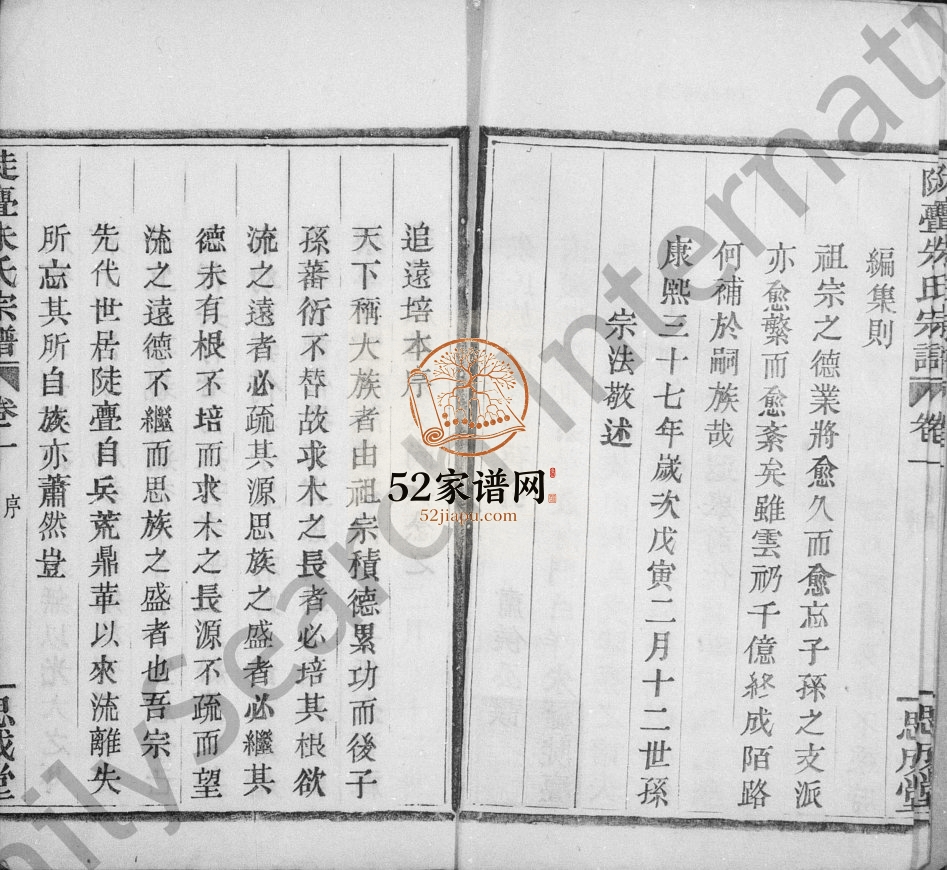 陡亹朱氏宗譜
卷一
思成堂
編集則
祖宗之德業將愈久而愈忘子孫之支派
亦愈繁而愈紊矣雖雲礽千億終成陌路
何補於嗣族哉
康熙三十七年歲次戊寅二月十二世孫
宗法敬述
追遠培本序
天下稱大族者由祖宗積德累功而後子
孫蕃衍不替故求木之長者必培其根欲
流之遠者必疏其源思族之盛者必繼其
德未有根不培而求木之長源不疏而望
流之遠德不繼而思族之盛者也吾宗
先代世居陡亹自兵荒鼎革以來流離失
所忘其所自族亦蕭然豈
陡亹朱氏宗譜
卷一
序
思成堂
52家谱网
52jiapu.com
FamilySearch International